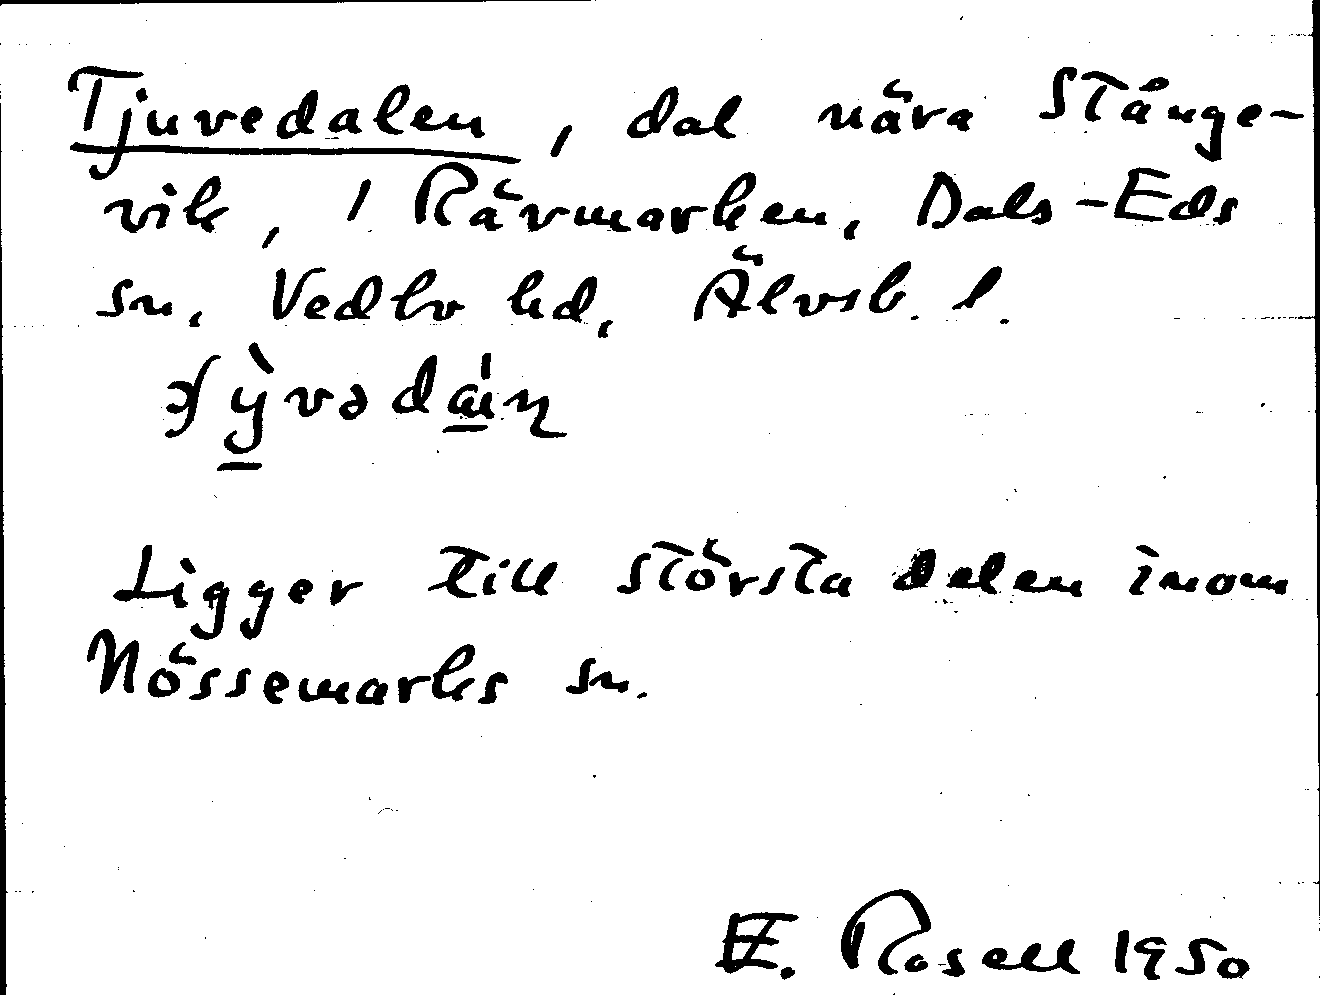 Tjuvedalen, dal nära Stånge-
vik, 1 Rävmarken, Dals-Eds
sn, Vedbo hd, Älvsb. l.
Ligger till största delen inom
Nössemarks sn.
E. Rosell 1950